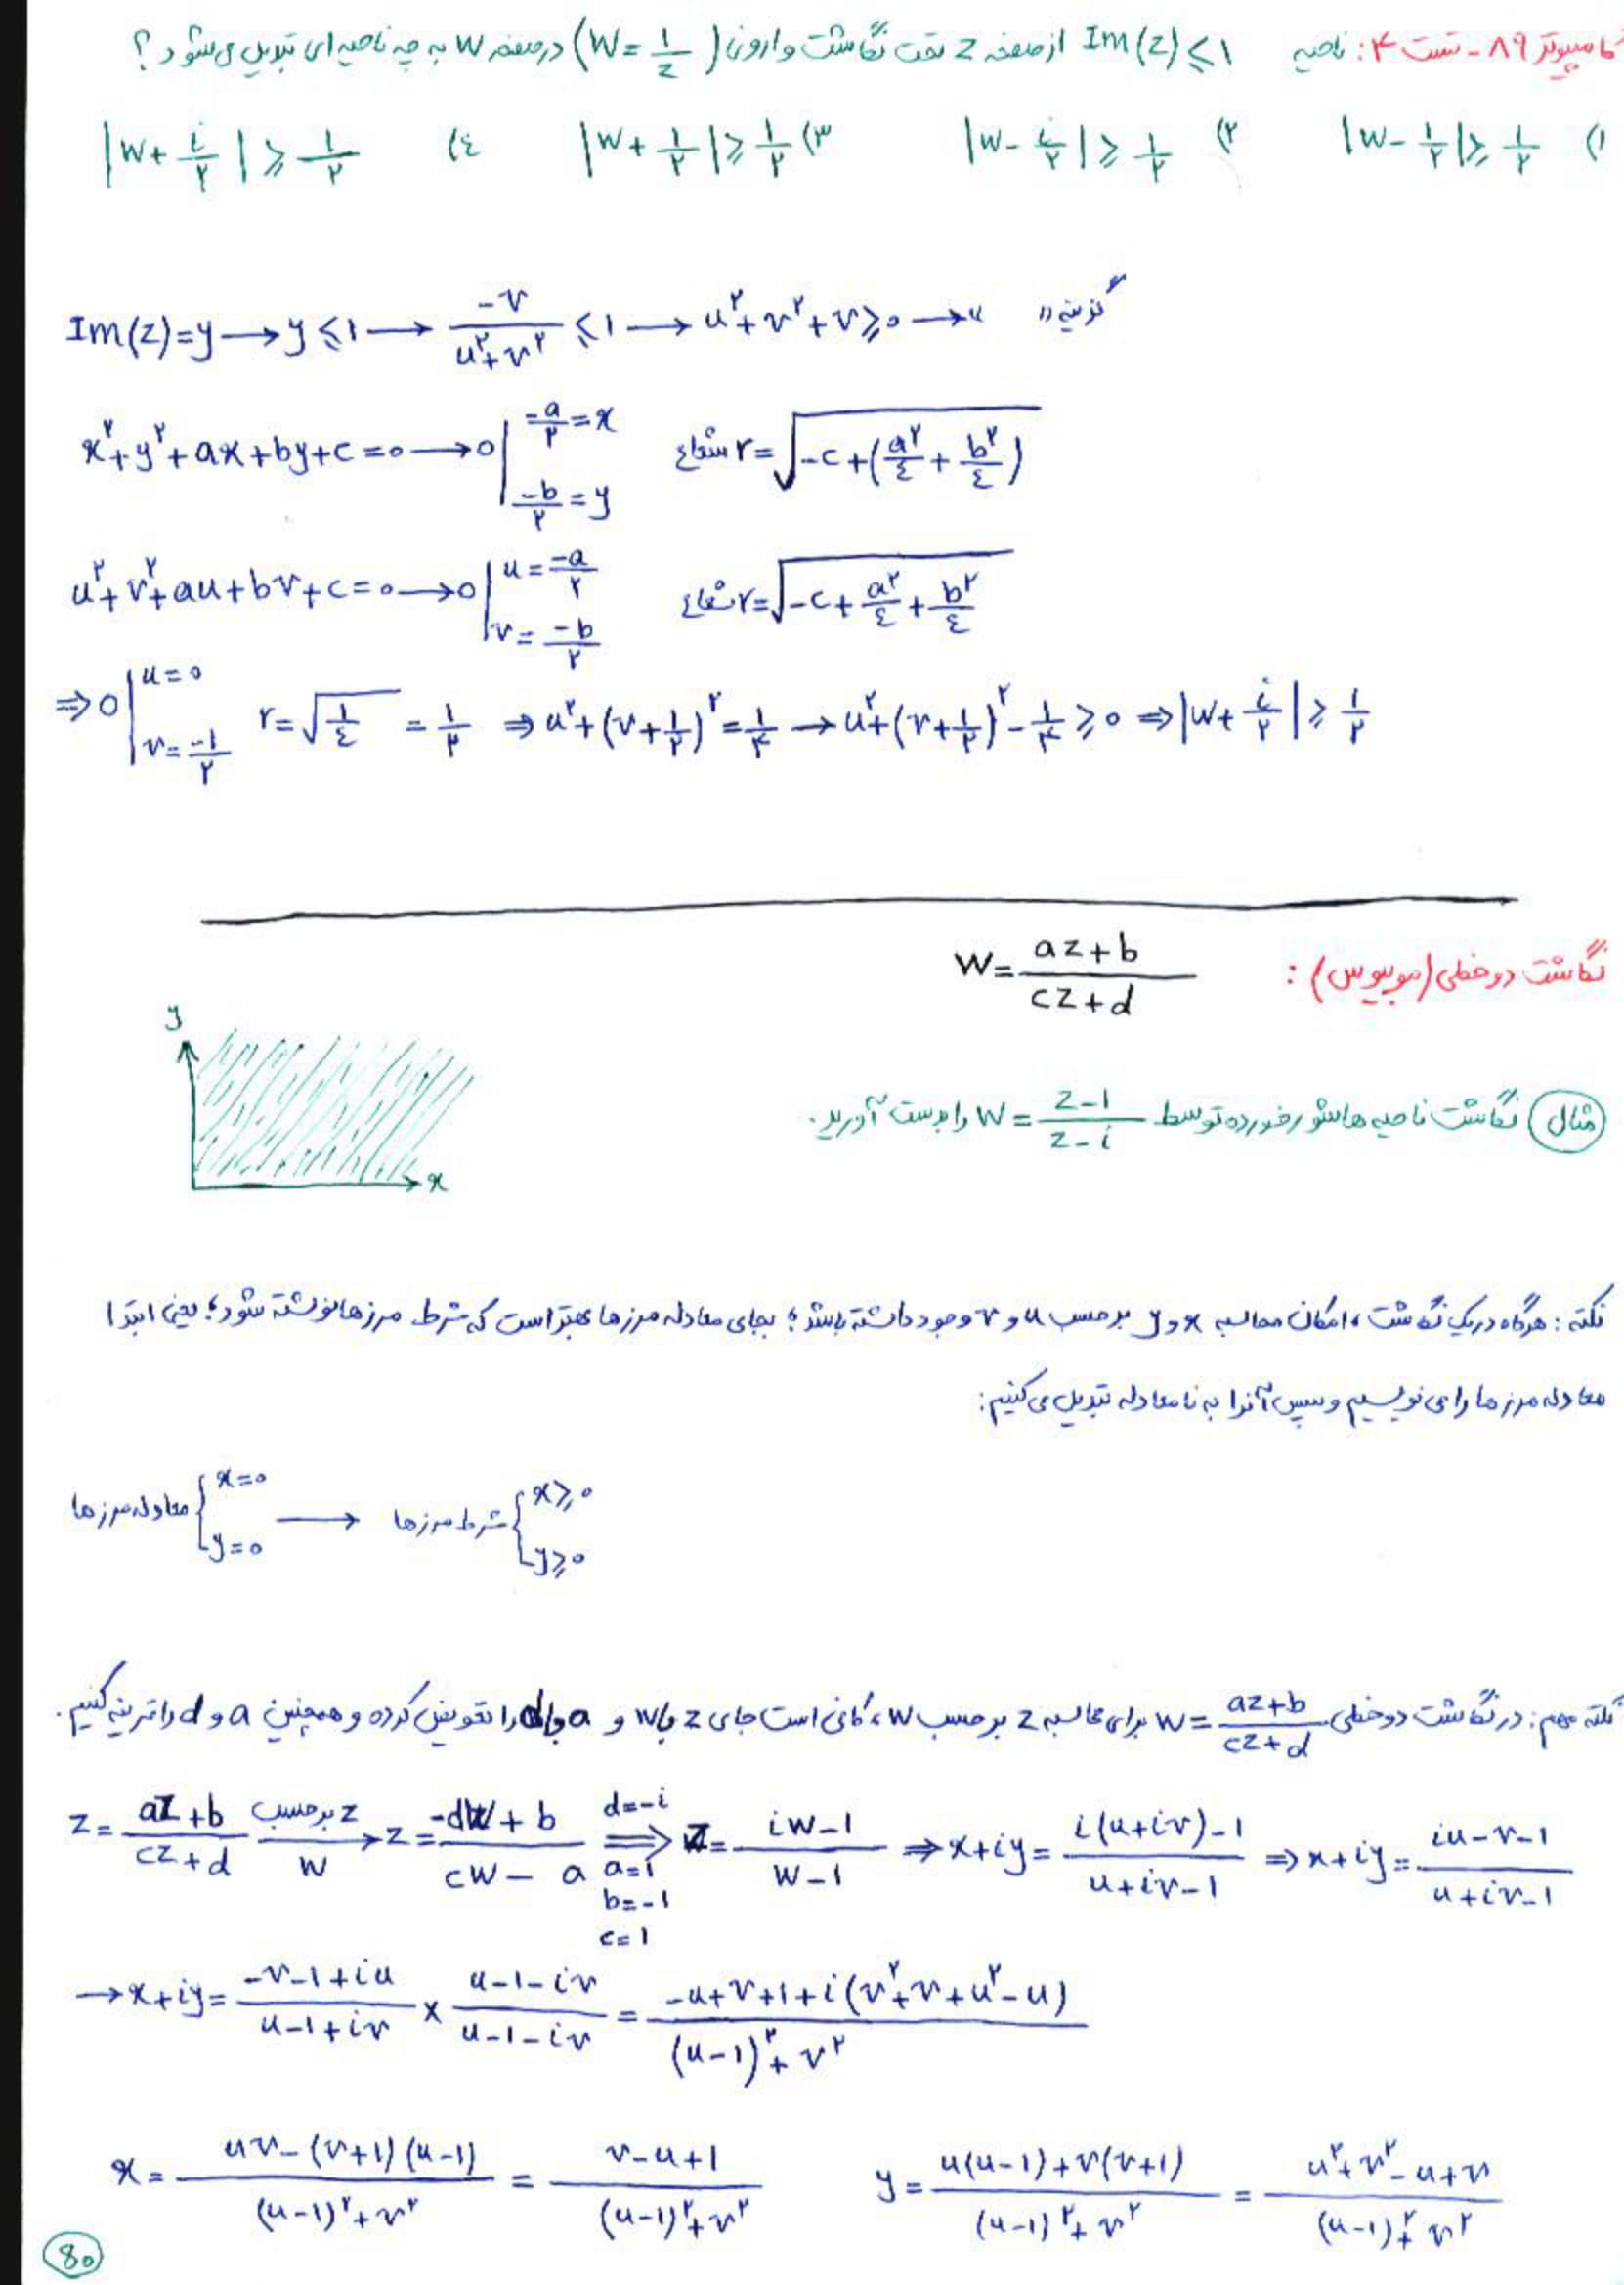 کامپیوتر ۸۹ - تست ۴: ناحیه Im(z) ≤ ۱ از صفحه z تحت نگاشت وارون (W = ۱/z) در صفحه W به چه ناحیه ای تبدیل می‌شود؟
۱) |W - ۱/۲| ≥ ۱/۲   ۲) |W - i/۲| ≥ ۱/۲   ۳) |W + ۱/۲| ≥ ۱/۲   ۴) |W + i/۲| ≥ ۱/۲
Im(z) = y → y ≤ ۱ → -v/(u²+v²) ≤ ۱ → u²+v²+v ≥ ۰ → گزینه
x²+y²+ax+by+c = ۰ → ۰ | -a/۲ = x , -b/۲ = y   شعاع r = √(-c+(a²/۴ + b²/۴))
u²+v²+au+bv+c = ۰ → ۰ | u = -a/۲ , v = -b/۲   شعاع r = √(-c + a²/۴ + b²/۴)
⇒ ۰ | u = ۰ , v = -۱/۲   r = √(۱/۴) = ۱/۲ ⇒ u²+(v+۱/۲)² = ۱/۴ → u²+(v+۱/۲)² - ۱/۴ ≥ ۰ ⇒ |W + i/۲| ≥ ۱/۲
نگاشت دوخطی (موبیوس): W = (az+b)/(cz+d)
مثال نگاشت ناحیه هاشور خورده توسط W = (z-1)/(z-i) را بدست آورید.
y
x
نکته: هرگاه در یک نگاشت، امکان محاسبه x و y برحسب u و v وجود داشته باشد؛ بجای معادله مرزها بهتر است که شرط مرزها نوشته شود؛ یعنی ابتدا
معادله مرزها را می نویسیم و سپس آنرا به نامعادله تبدیل می کنیم:
معادله مرزها { x = ۰ , y = ۰ → شرط مرزها { x ≥ ۰ , y ≥ ۰
نکته مهم: در نگاشت دوخطی W = (az+b)/(cz+d) برای محاسبه z برحسب W، کافی است جای z با W و a با d را تعویض کرده و همچنین a و d را قرینه کنیم.
z = (az+b)/(cz+d) → z برحسب W → z = (-dW+b)/(cW-a) ⇒ d=-i a=1 b=-1 c=1 z = (iW-1)/(W-1) ⇒ x+iy = (i(u+iv)-1)/(u+iv-1) ⇒ x+iy = (iu-v-1)/(u+iv-1)
→ x+iy = (-v-1+iu)/(u-1+iv) × (u-1-iv)/(u-1-iv) = (-u+v+1+i(v²+v+u²-u))/((u-1)²+v²)
x = (uv-(v+1)(u-1))/((u-1)²+v²) = (v-u+1)/((u-1)²+v²)   y = (u(u-1)+v(v+1))/((u-1)²+v²) = (u²+v²-u+v)/((u-1)²+v²)
80